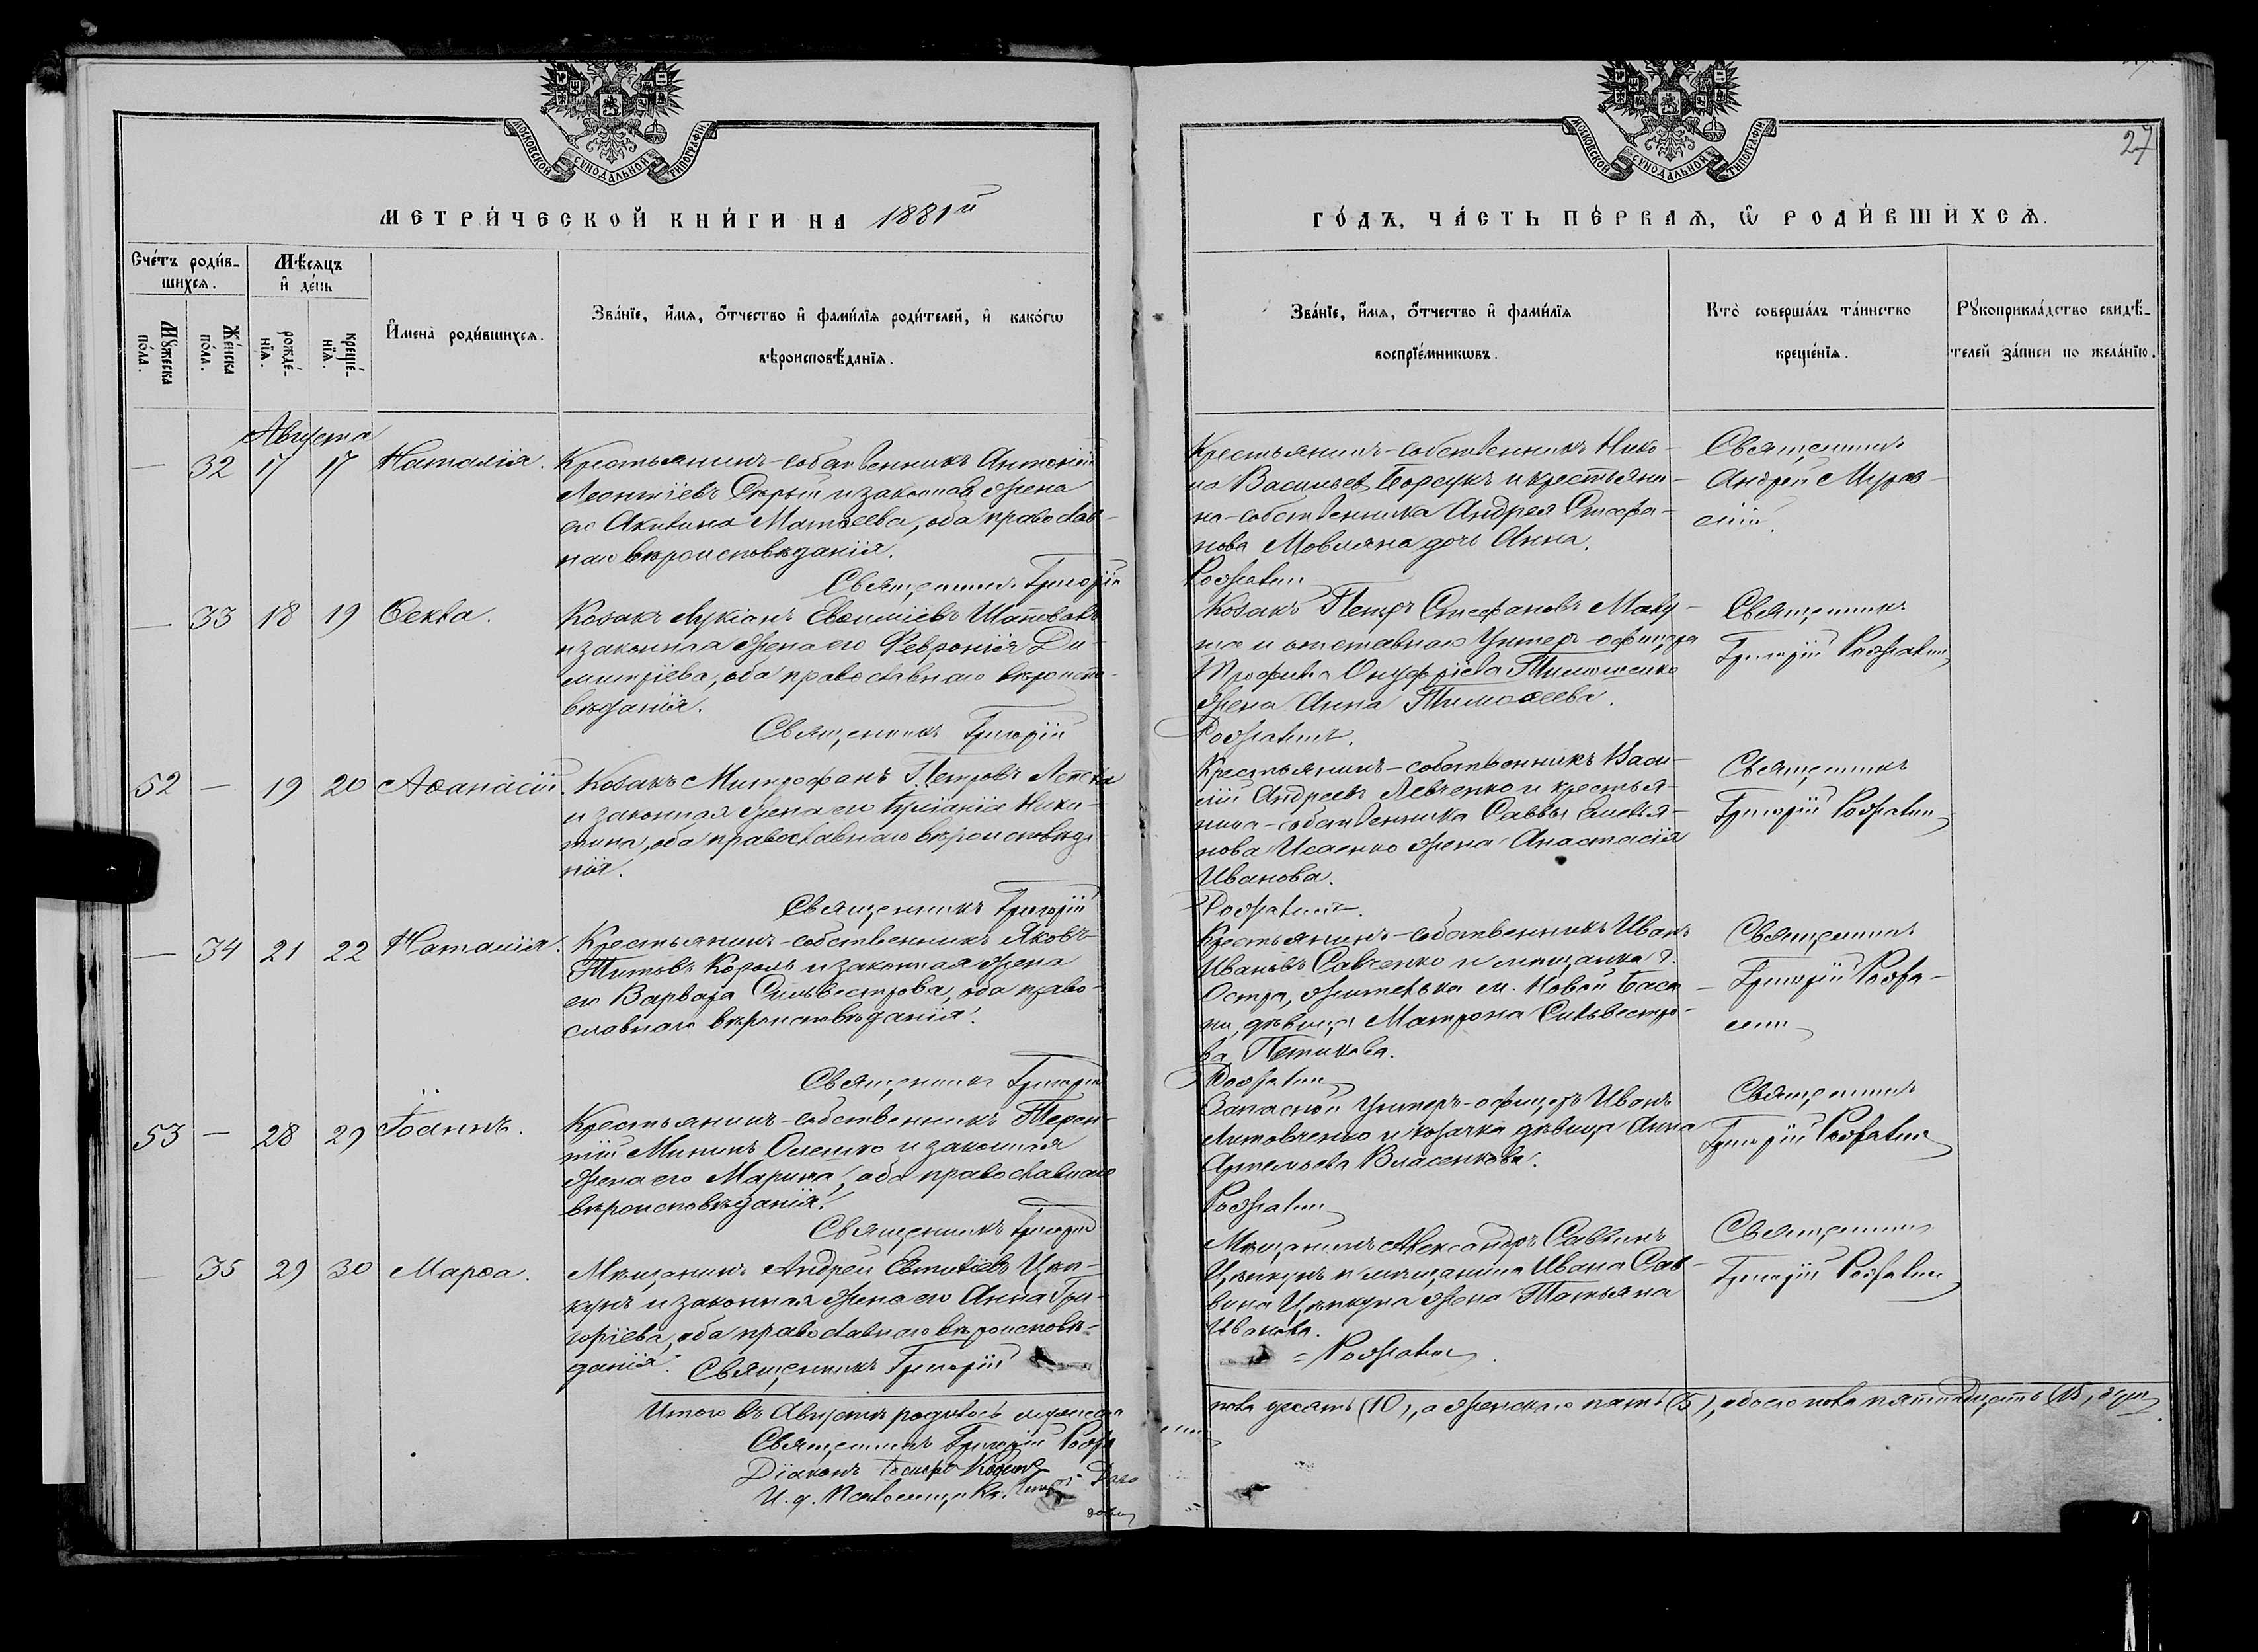 27
МОСКОВСКОЙ СУНОДАЛЬНОЙ ТИПОГРАФІИ.
МОСКОВСКОЙ СУНОДАЛЬНОЙ ТИПОГРАФІИ.
МЕТРИ́ЧЕСКОЙ КНИ́ГИ НА 1881й
ГО́ДЪ, ЧА́СТЬ ПЕ́РВАѦ, Ѽ РОДИ́ВШИХСѦ.
Сче́тъ роди́в-
шихсѧ.
Мѣ́сѧцъ
и҆ де́нь
Мꙋ́жеска
по́ла.
Же́нска
по́ла.
рожде́-
нїѧ.
креще́-
нїѧ.
И҆мена̀ роди́вшихсѧ.
Зва́нїе, и҆́мѧ, ѻ҆́тчество и҆ фами́лїѧ роди́телей, и҆ како́гѡ
вѣроисповѣ́данїѧ.
Зва́нїе, и҆́мѧ, ѻ҆́тчество и҆ фами́лїѧ
воспрїе́мникѡвъ.
Кто̀ соверша́лъ та́инство
креще́нїѧ.
Рꙋкоприкла́дство свидѣ́-
телей за́писи по жела́нїю.
Августа
— 32 17 17 Наталія.
Крестьянинъ-собственникъ Антоній
Леонтіевъ Скрып и законная жена
его Акилина Матѳеева, оба православ-
наго вѣроисповѣданія.
Священникъ Григорій
Крестьянинъ-собственникъ Нико-
ла Васильевъ Борсукъ и крестьяни-
на-собственника Андрея Стефа-
нова Мовчана дочь Анна.
Священникъ
Андрей
— 33 18 19 Ѳекла.
Козакъ Лукіанъ Евѳиміевъ Шаповалъ
и законная жена его Февронія Ди-
митріева, оба православнаго вѣроиспо-
вѣданія.
Священникъ Григорій
Козакъ Петръ Стефановъ Маку-
ха и отставнаго унтеръ-офицера
Трофима Онуфріева Тимошенко
жена Анна Тимоѳеева.
Священникъ
Григорій
52 — 19 20 Аѳанасій.
Козакъ Митрофанъ Петровъ Лепска
и законная жена его Іуліанія Ники-
тина, оба православнаго вѣроисповѣда-
нія.
Священникъ Григорій
Крестьянинъ-собственникъ Васи-
лій Андреевъ Левченко и крестья-
нина-собственника Саввы Емелья-
нова Исаенко жена Анастасія
Иванова.
Священникъ
Григорій
— 34 21 22 Наталія.
Крестьянинъ-собственникъ Яковъ
Титовъ Король и законная жена
его Варвара Сильвестрова, оба право-
славнаго вѣроисповѣданія.
Священникъ Григорій
Крестьянинъ-собственникъ Иванъ
Ивановъ Савченко и мѣщанка г.
Остра, жителька м. Новой Баса-
ни, дѣвица Матрона Сильвестро-
ва Петикова.
Священникъ
Григорій
53 — 28 29 Іоаннъ.
Крестьянинъ-собственникъ Терен-
тій Мининъ Оленко и законная
жена его Марина, оба православнаго
вѣроисповѣданія.
Священникъ Григорій
Запасной унтеръ-офицеръ Иванъ
Литовченко и козачка дѣвица Анна
Артемьева Власенкова.
Священникъ
Григорій
— 35 29 30 Марѳа.
Мѣщанинъ Андрей Евтихіевъ Цѣп-
кунъ и законная жена его Анна Гри-
горіева, оба православнаго вѣроисповѣ-
данія. Священникъ Григорій
Мѣщанинъ Александръ Саввинъ
Цѣпкунъ и мѣщанина Ивана Сав-
вина Цѣпкуна жена Татьяна
Иванова.
Священникъ
Григорій
Итого въ Августѣ родилось мужеска
пола десять (10), а женскаго пять (5), обоего пола пятнадцать (15) душъ
Священникъ Григорій
Діаконъ
И. д. Псаломщика